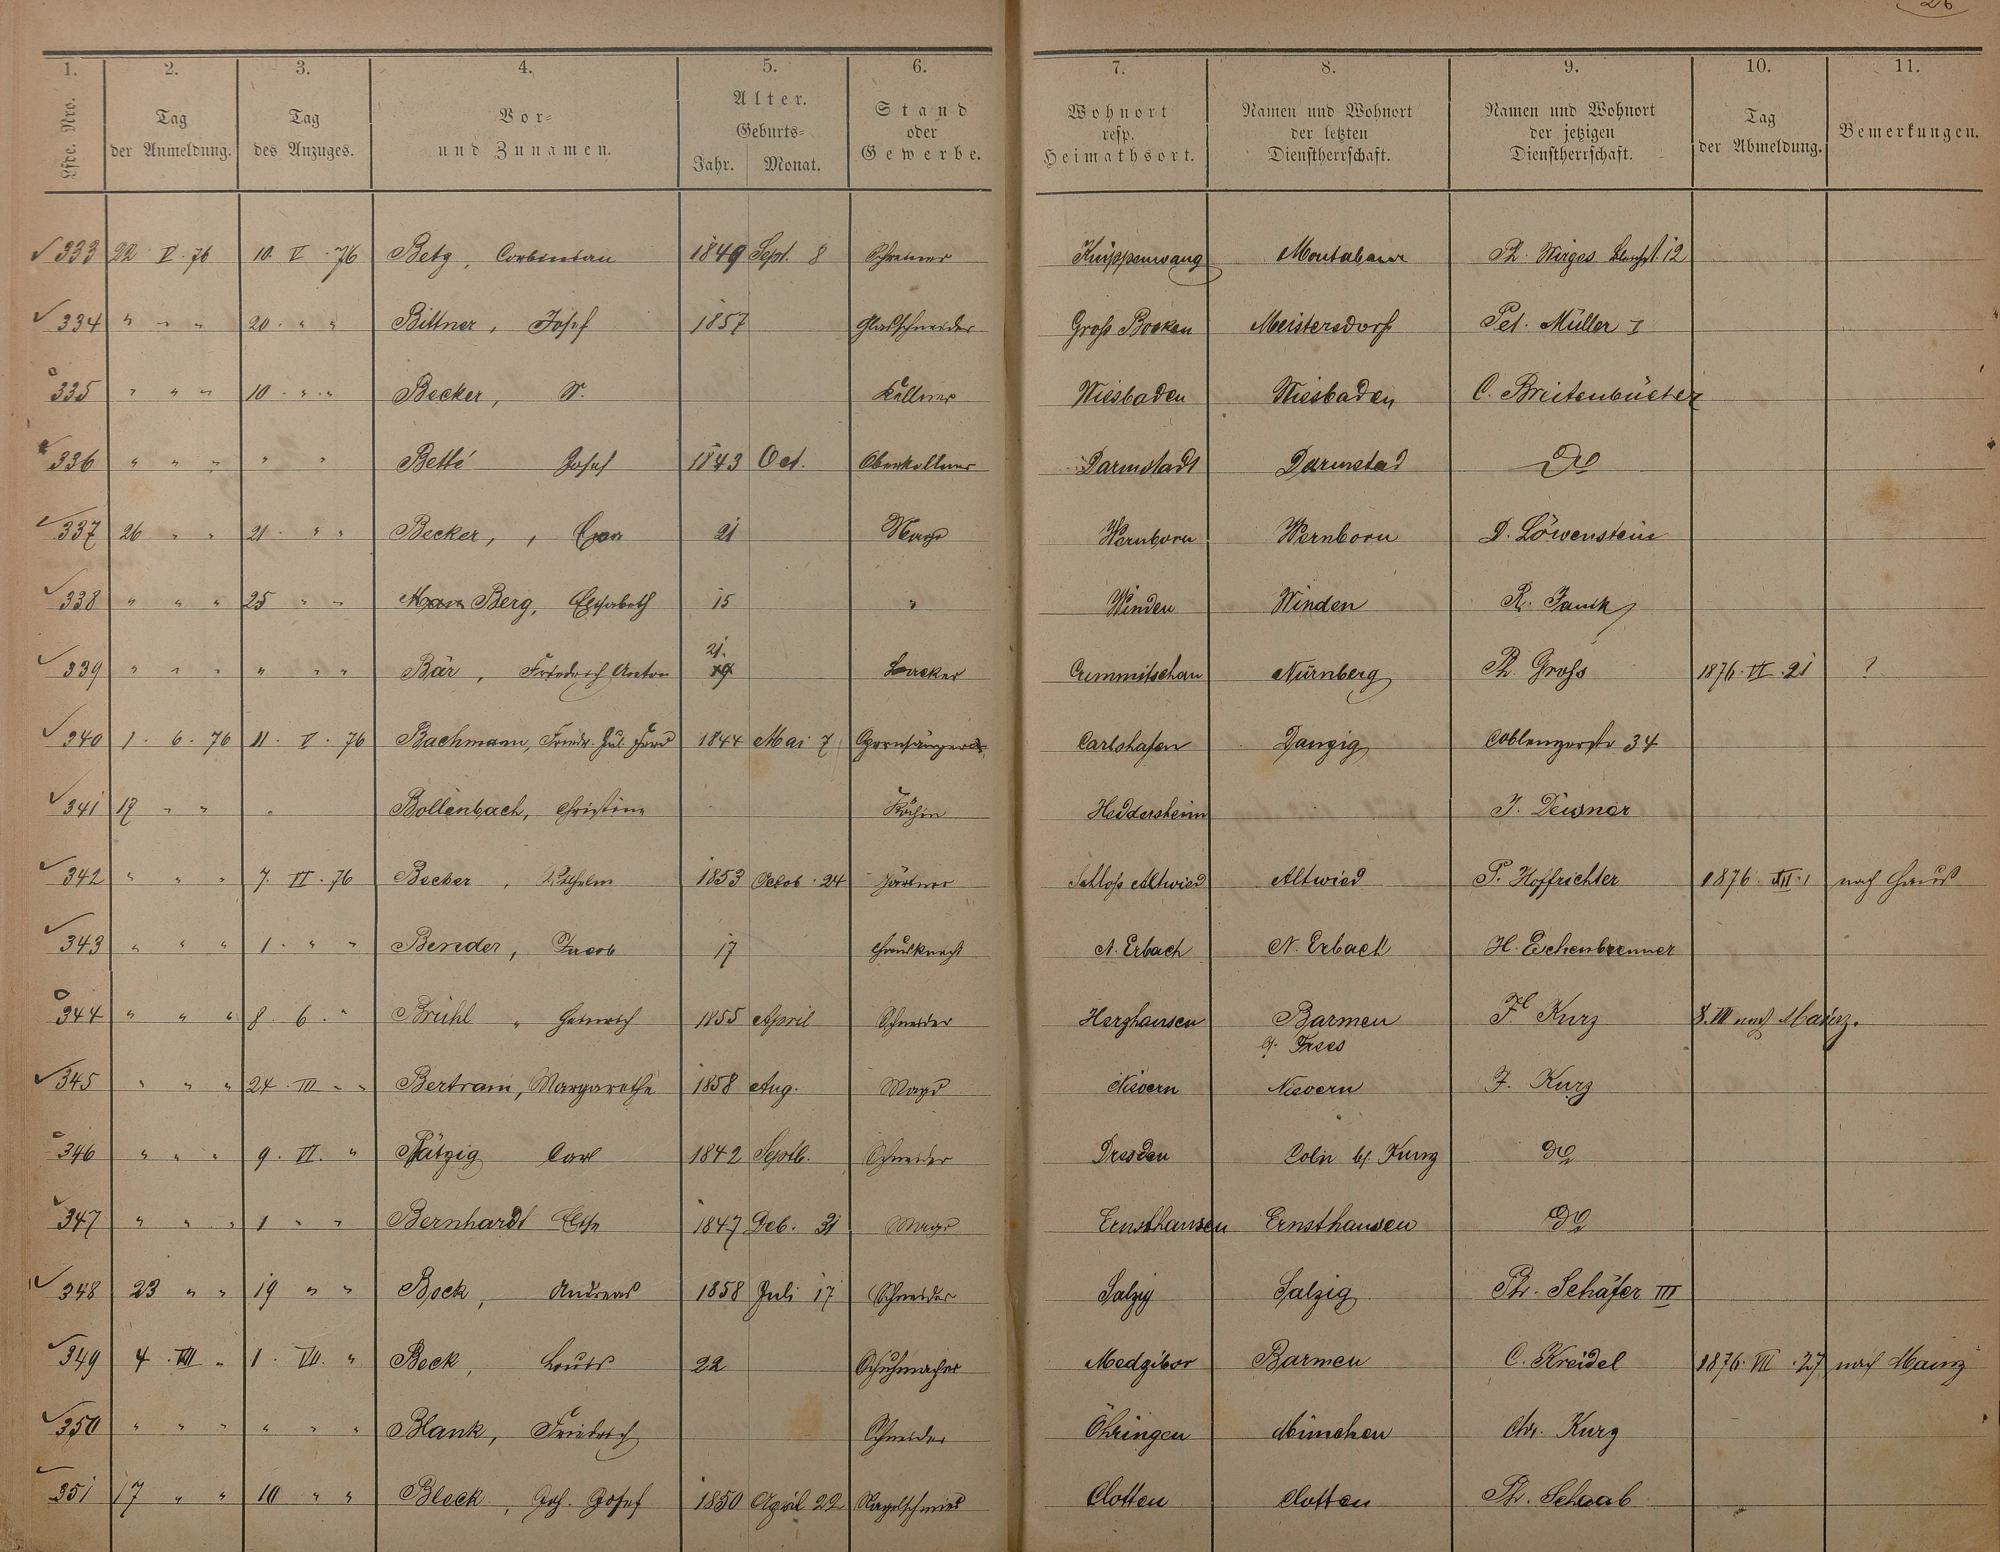 26
1. 2. 3. 4. 5. 6. 7. 8. 9. 10. 11.
Lfde. Nro. Tag der Anmeldung. Tag des Anzuges. Vor- und Zunamen. Alter. Geburts- Jahr. Monat. Stand oder Gewerbe. Wohnort resp. Heimathsort. Namen und Wohnort der letzten Dienstherrschaft. Namen und Wohnort der jetzigen Dienstherrschaft. Tag der Abmeldung. Bemerkungen.
333 22 V. 76 10. V. 76 Betz, Corbinian 1849 Sept. 8 Schreiner Montabaur Ph. Wirges 12
334 " " " 20. " " Bittner, Josef 1857 Glasschneider Groß Bocken Meistersdorf Pet. Müller I
335 " " " 10. " " Becker, Kellner Wiesbaden Wiesbaden C. Breitenbücher
336 " " " " " Betté Josef 1843 Oct. Oberkellner Darmstadt Darmstad do
337 26 " " 21. " " Becker, 21 Magd Wernborn Wernborn D. Löwenstein
338 " " " 25 " " Berg, Elisabeth 15 " Winden Winden R. Janik
339 " " " " " " Bär, Friedrich Anton 21. 19 Lacker Crimmitschau Nürnberg Ph. Groß 1876. VI. 21 ?
340 1. 6. 76 11. V. 76 Bachmann, Friedr. Jul. Ferd 1844 Mai 7 Opernsänger Carlshafen Danzig Coblenzerstr 34
341 17 " " " Bollenbach, Christine Köchin Heddersheim J. Deisner
342 " " " 7. VI. 76 Becker, Wilhelm 1853 Octob. 24 Gärtner Schloß Altwied Altwied P. Hoffrichter 1876. 1 nach Haus
343 " " " 1. " " Bender, Jacob 17 Hausknecht N. Erbach N. Erbach H. Eschenbrenner
344 " " " 8. 6. " Brühl " Heinrich 1855 April Schneider Herzhausen Barmen Fl Kurz 8. VII nach Mainz.
Frees
345 " " " 24. III " " Bertram, Margarethe 1858 Aug. Magd Nievern Nievern F. Kurz
346 " " " 9. VI. " Pätzig Carl 1842 Septb. Schneider Dresden Coln b/ Kurz do
347 " " " 1 " " Bernhardt Elise 1847 Deb. 31 Magd Ernsthausen Ernsthausen do
348 23 " " 19 " " Bock, Andreas 1858 Juli 17 Schneider Salzig Salzig Ph. Schäfer III
349 4. VII " 1. VII. " Beck, Louis 22 Schuhmacher Medzibor Barmen C. Kreidel 1876. VII. 27 nach Mainz
350 " " " " " " Blank, Friedrich Schneider Öhringen München Chr. Kurz
351 17 " " 10 " " Bleck, Joh. Josef 1850 April 22 Nagelschmied Clotten Clotten Ph. Schaab